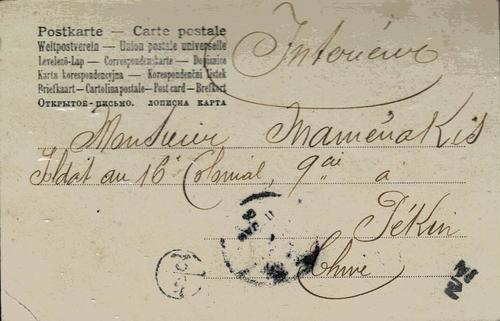 Postkarte — Carte postale
Weltpostverein — Union postale universelle
Levelező-Lap — Correspondenzkarte — Dopisnice
Karta korespondencyjna — Korespondenční lístek
Briefkaart — Cartolina postale — Post card — Brefkort
Открытое письмо. дописна карта
Intérieur
Monsieur Mamenakis
Sldat au 16e Colonial, 9 a
Pékin
Chine